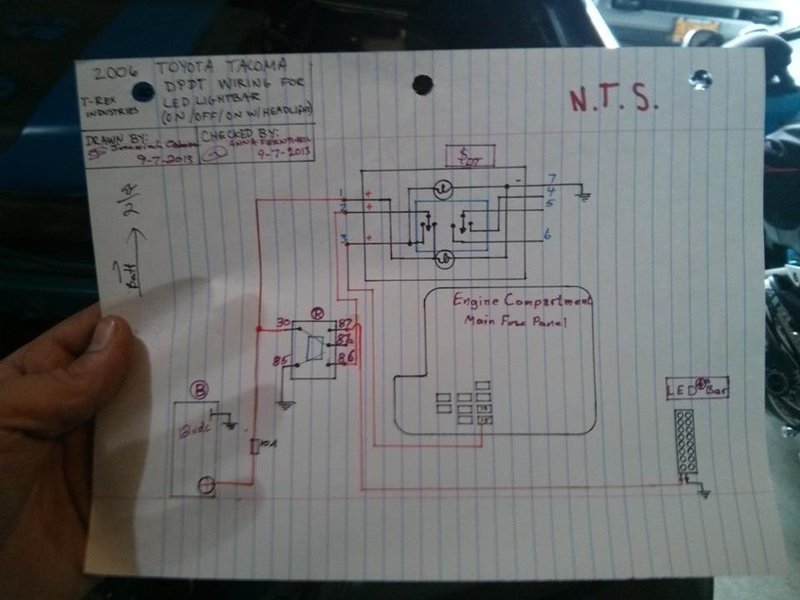 2006 TOYOTA TACOMA
DPDT WIRING FOR
LED LIGHTBAR
(ON/OFF/ON W/HEADLIGHT)
T-REX
INDUSTRIES
DRAWN BY:
9-7-2013
CHECKED BY:
9-7-2013
N.T.S.
Batt
2
DT
1 + - 7
2 + 4
5
3 + 6
Engine Compartment
Main Fuse Panel
R
30 87
87a
85 86
B
12vdc
10A
LED Bar